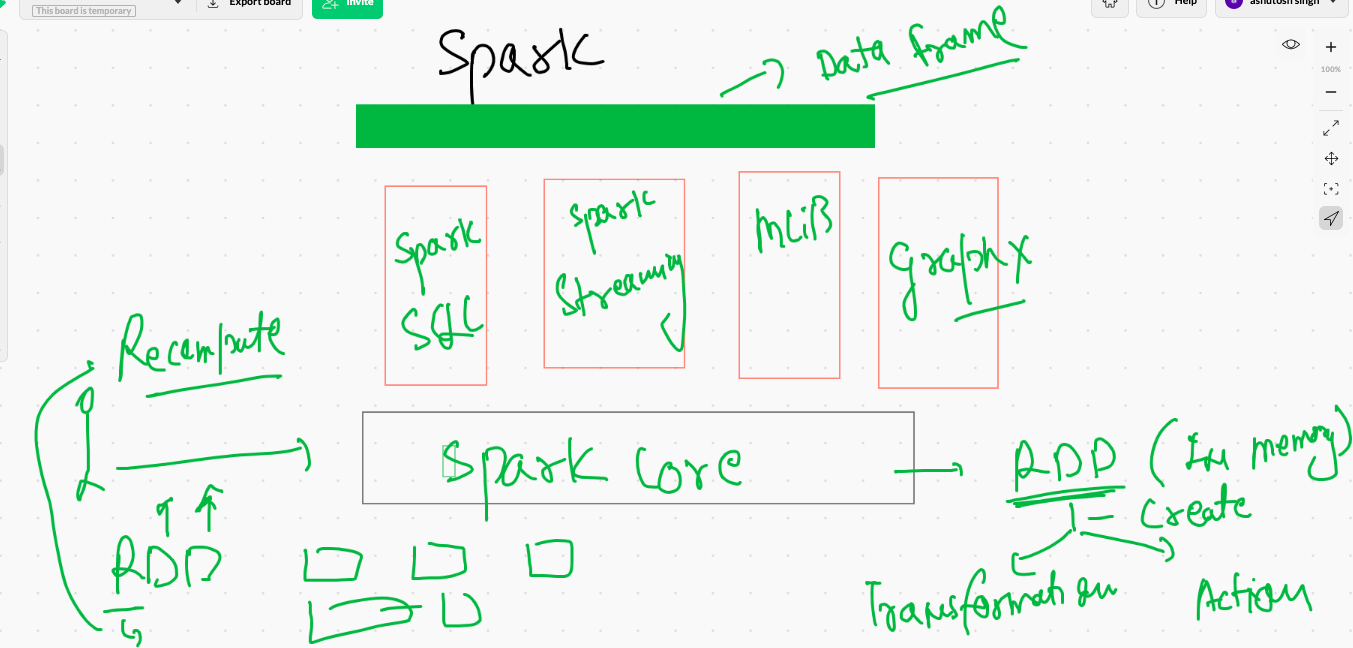 This board is temporary
Export board
Invite
Help
ashutosh singh
Spark
Data frame
100%
Spark
SQL
Spark
Streaming
MLiB
GraphX
Recompute
Spark Core
RDD (In memory)
1 - Create
RDD
Transformation
Action